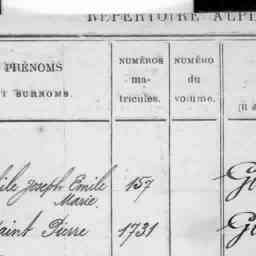 RÉPERTOIRE ALPH
PRÉNOMS
ET SURNOMS.
NUMÉROS
ma-
tricules.
NUMÉRO
du
volume.
Joseph Emile 157
Marie
Saint Pierre 1731